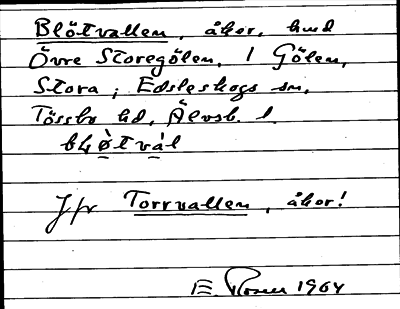 Blötvallen, åker, hmd
Övre Storegölen, 1 Gölen,
Stora, Edsleskogs sn,
Tössbo hd, Älvsb. l.
Jfr Torrvallen, åker!
E. 1964